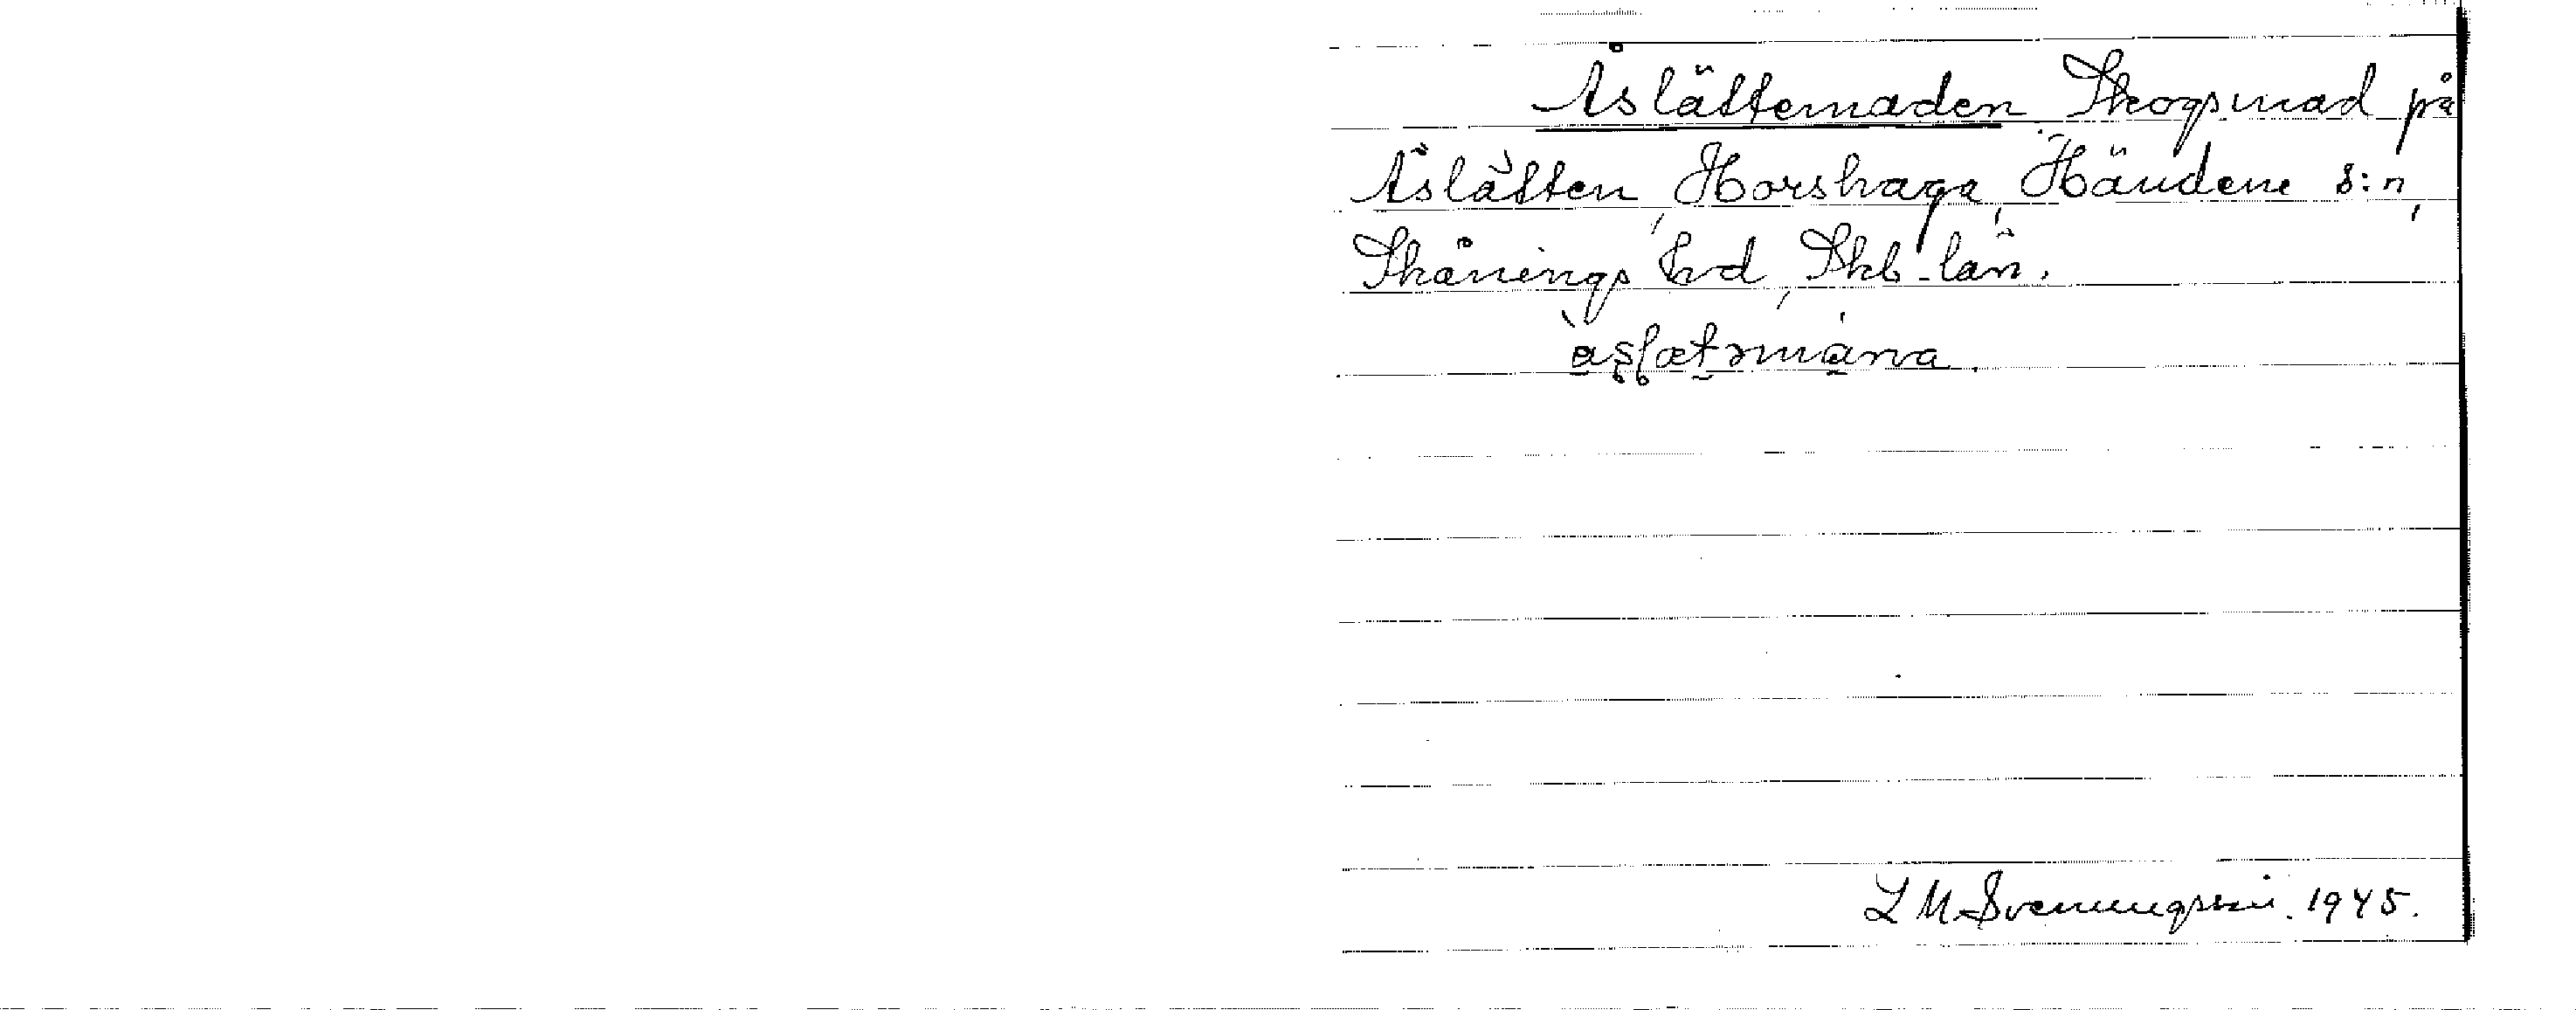 Åslättemaden. Skogsmad på
Åslätten, Horshaga, Händene s:n,
Skånings hd, Skb-län.
L M Svenungsson. 1945.